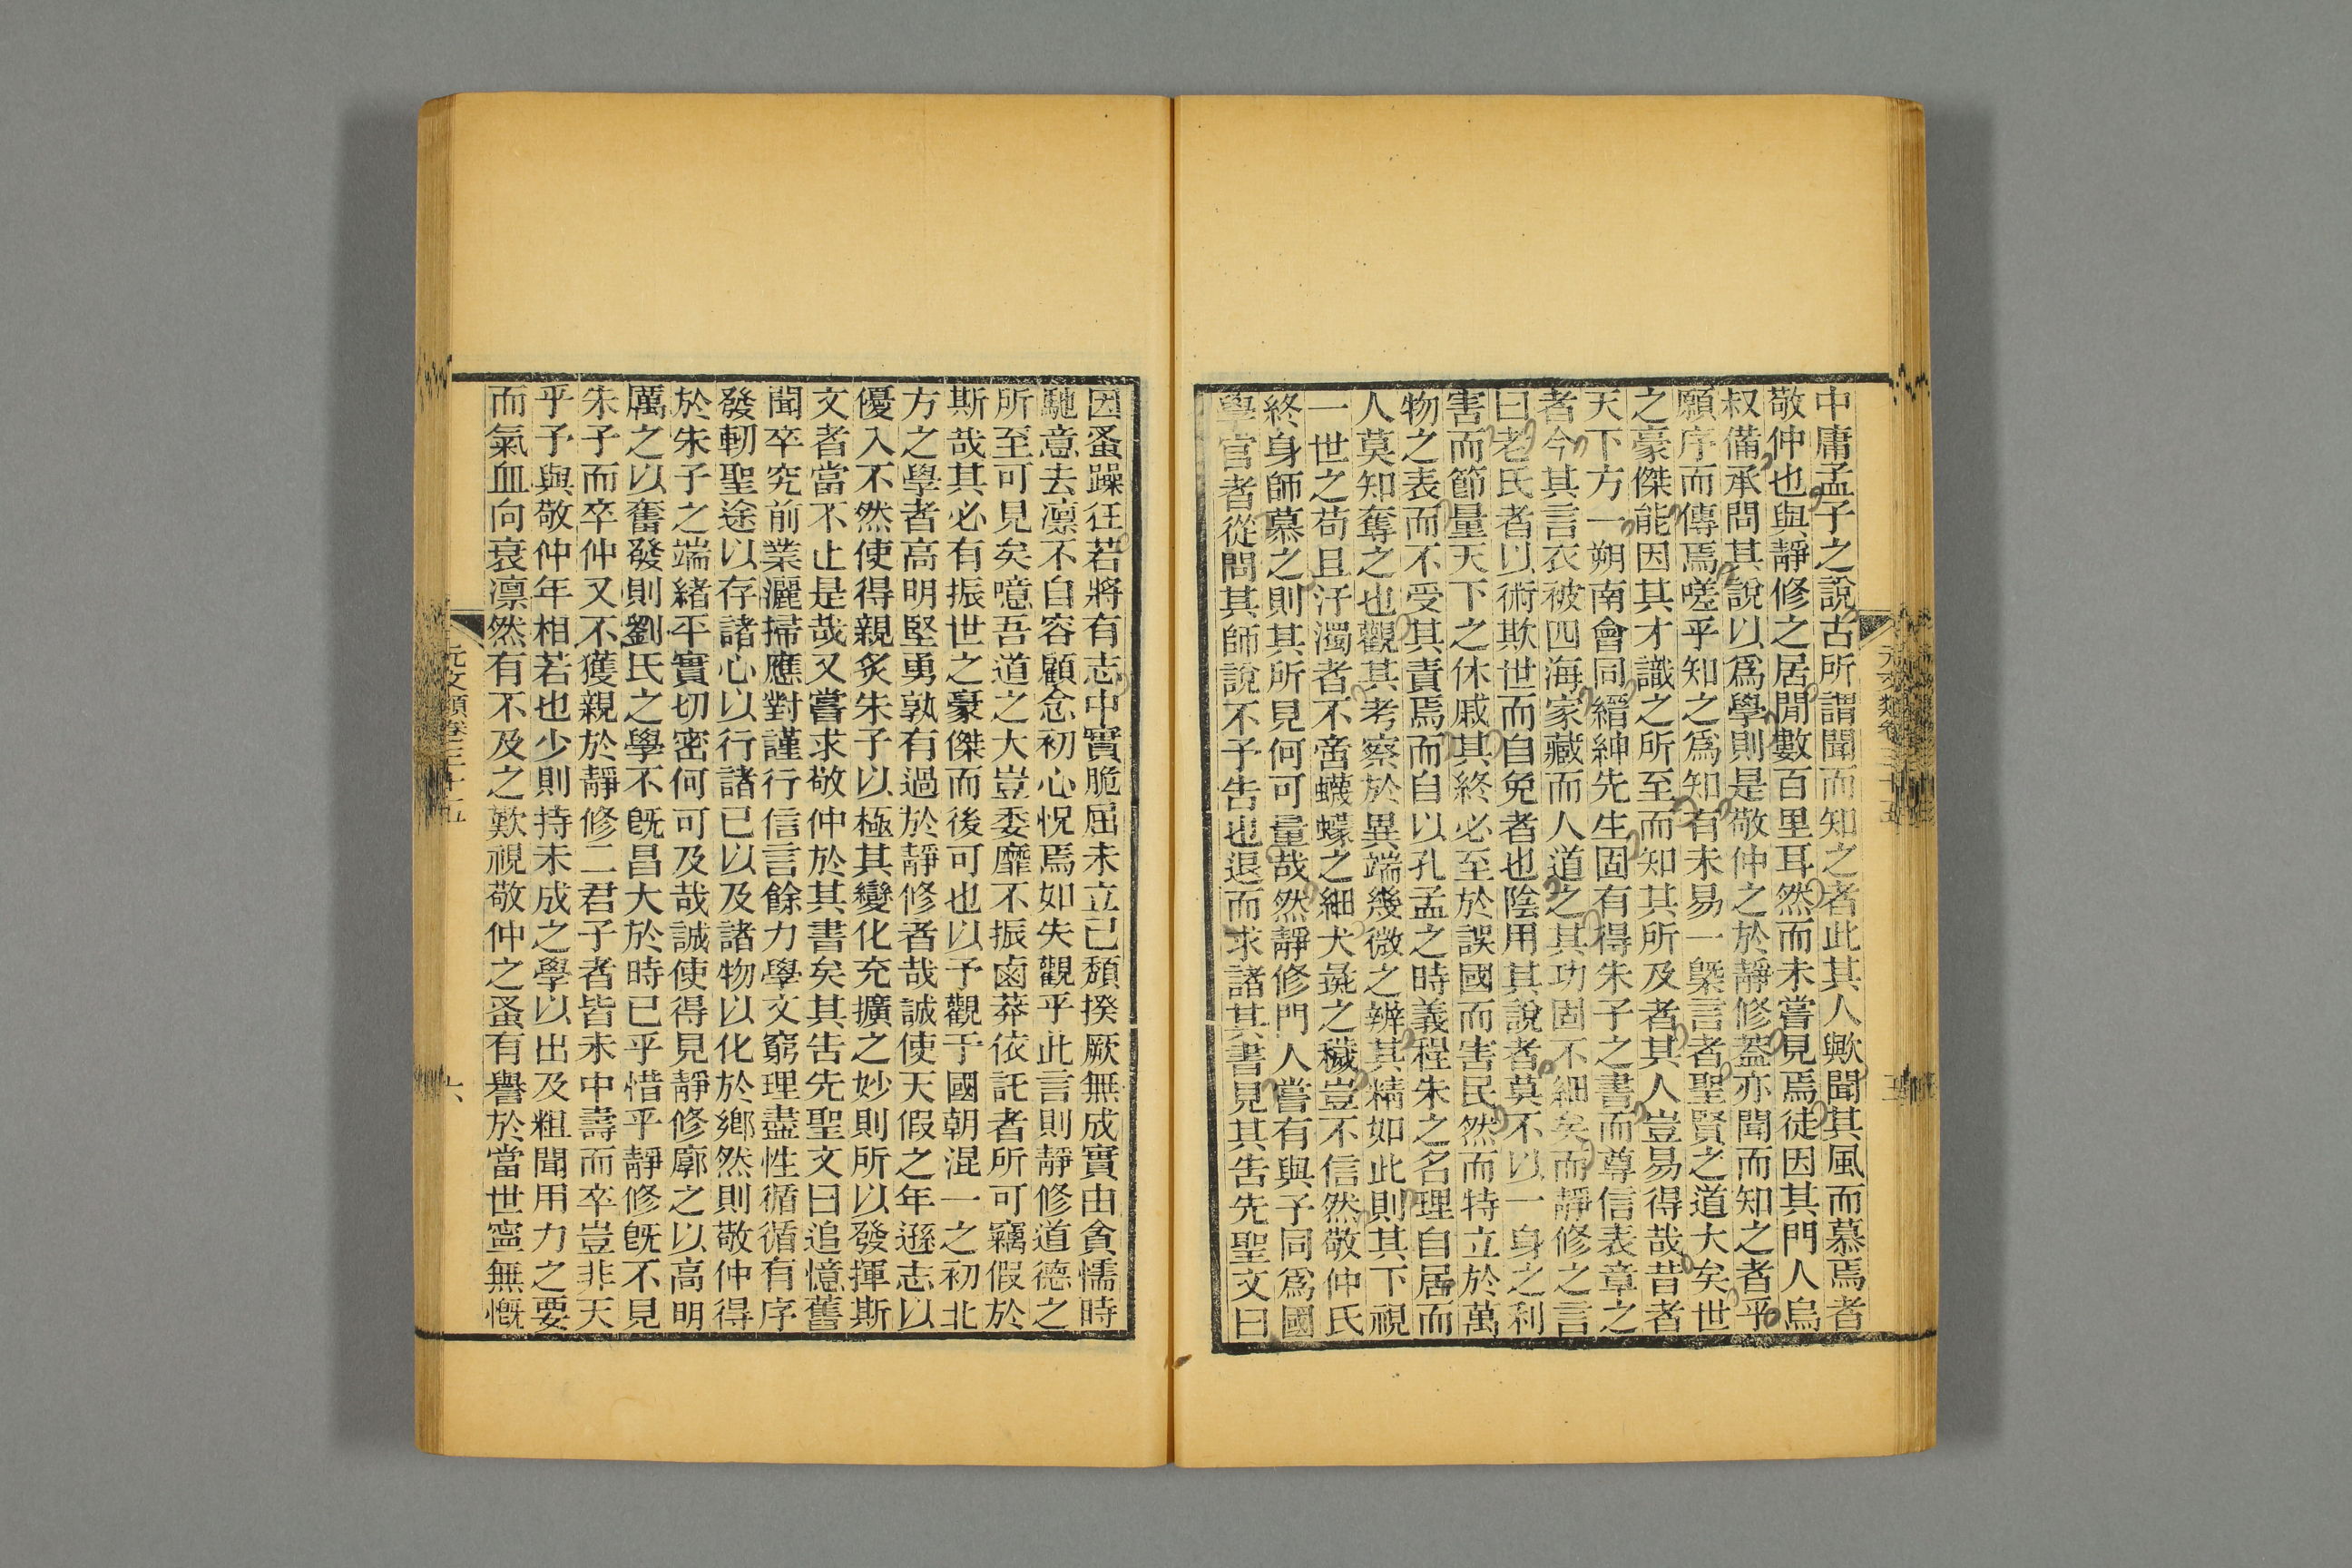 中庸孟子之說古所謂聞而知之者此其人歟聞其風而慕焉者
敬仲也與靜修之居閒數百里耳然而未嘗見焉徒因其門人烏
叔備承問其說以爲學則是敬仲之於靜修蓋亦聞而知之者乎
願序而傳焉嗟乎知之爲知有未易一槩言者聖賢之道大矣世
之豪傑能因其才識之所至而知其所及者其人豈易得哉昔者
天下方一朔南會同縉紳先生固有得朱子之書而尊信表章之
者今其言衣被四海家藏而人道之其功固不細矣而靜修之言
曰老氏者以術欺世而自免者也陰用其說者莫不以一身之利
害而節量天下之休戚其終必至於誤國而害民然而特立於萬
物之表而不受其責焉而自以孔孟之時義程朱之名理自居而
人莫知奪之也觀其考察於異端幾微之辨其精如此則其下視
一世之苟且汙濁者不啻蠛蠓之細犬彘之穢豈不信然敬仲氏
終身師慕之則其所見何可量哉然靜修門人嘗有與予同爲國
學官者從問其師說不予告也退而求諸其書見其告先聖文曰
元文類卷三十五
五
因蚤躁狂若將有志中實脆屈未立己頹揆厥無成實由貪懦時
馳意去凛不自容顧念初心怳焉如失觀乎此言則靜修道德之
所至可見矣噫吾道之大豈委靡不振鹵莽依託者所可竊假於
斯哉其必有振世之豪傑而後可也以予觀于國朝混一之初北
方之學者高明堅勇孰有過於靜修者哉誠使天假之年遜志以
優入不然使得親炙朱子以極其變化充擴之妙則所以發揮斯
文者當不止是哉又嘗求敬仲於其書矣其告先聖文曰追憶舊
聞卒究前業灑掃應對謹行信言餘力學文窮理盡性循循有序
發軔聖途以存諸心以行諸己以及諸物以化於鄕然則敬仲得
於朱子之端緒平實切密何可及哉誠使得見靜修廓之以高明
厲之以奮發則劉氏之學不旣昌大於時已乎惜乎靜修旣不見
朱子而卒仲又不獲親於靜修二君子者皆未中壽而卒豈非天
乎予與敬仲年相若也少則持未成之學以出及粗聞用力之要
而氣血向衰凛然有不及之歎視敬仲之蚤有譽於當世寧無慨
元文類卷三十五
六